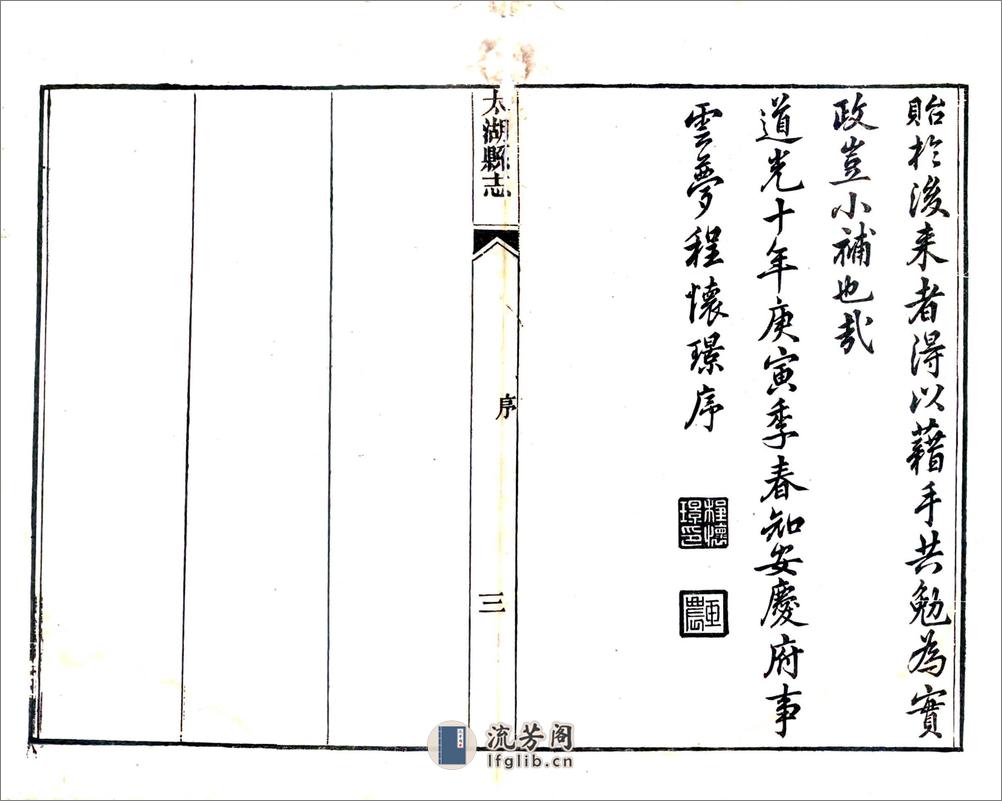 貽於後来者得以藉手共勉為實
政豈小補也哉
道光十年庚寅季春知安慶府事
雲夢程懷璟序
程懷璟印
農
太湖縣志
序
三
流芳阁
lfglib.cn